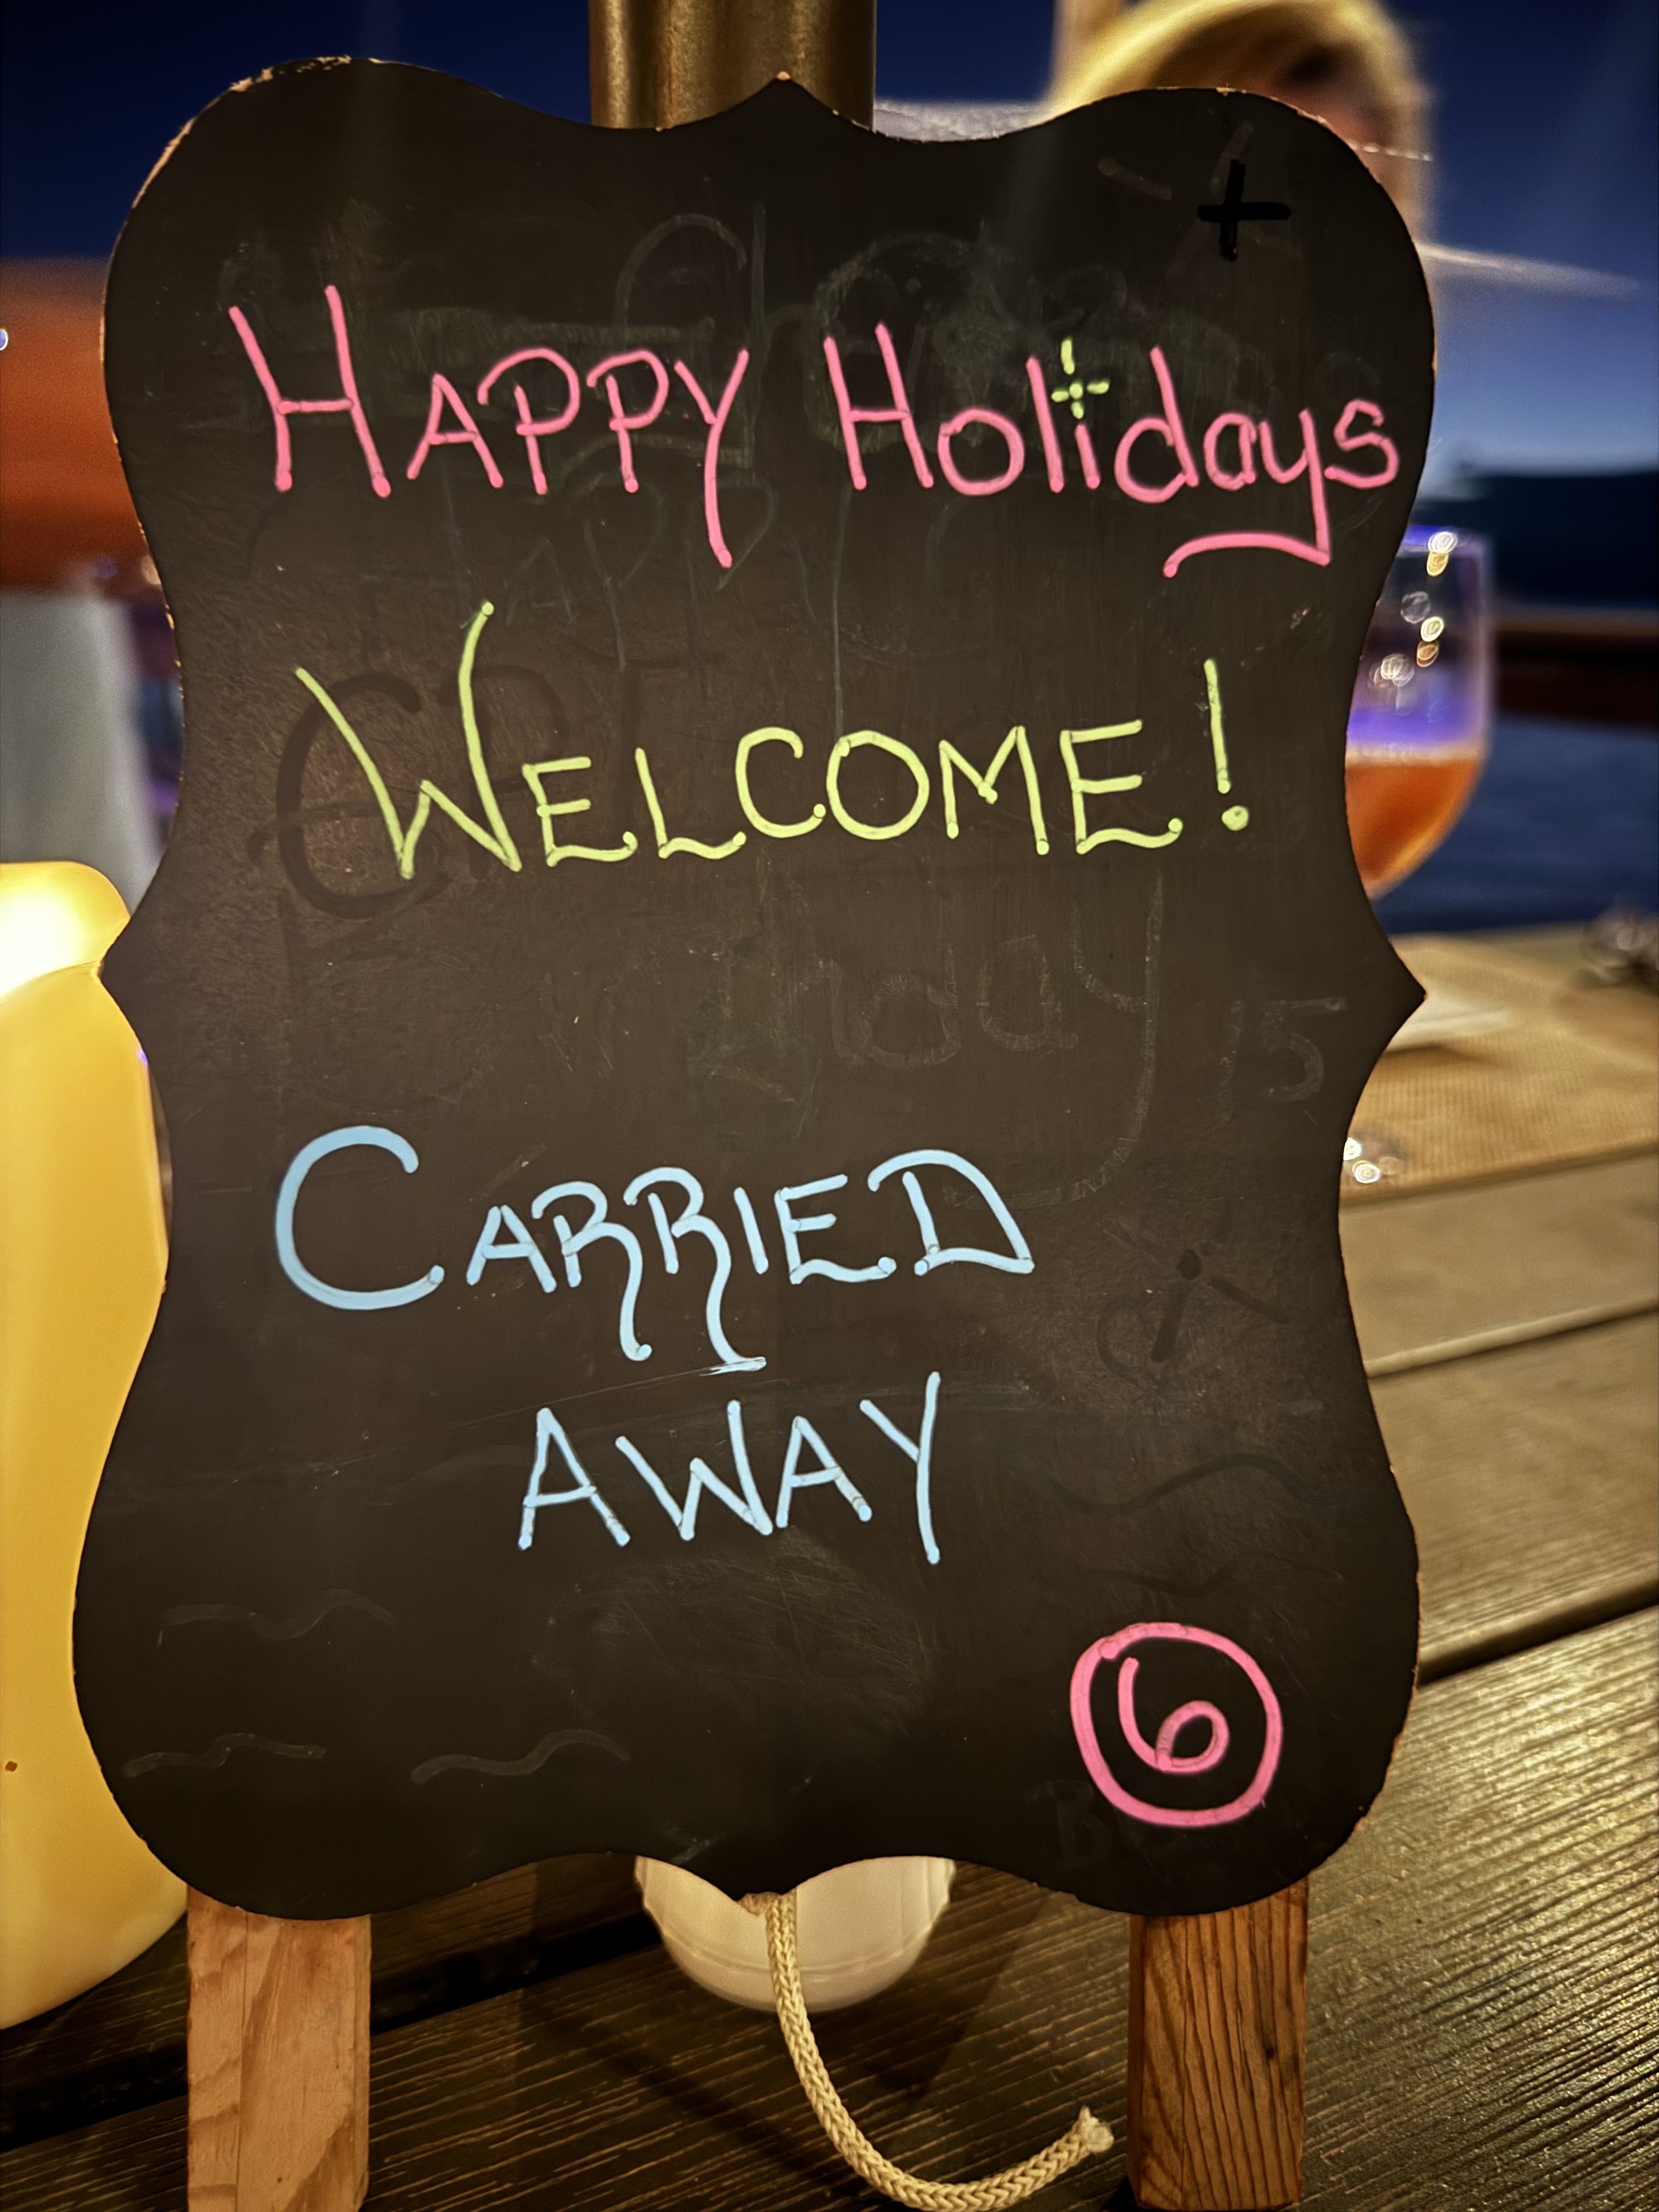 HAPPY Holidays
WELCOME!
CARRIED
AWAY
6